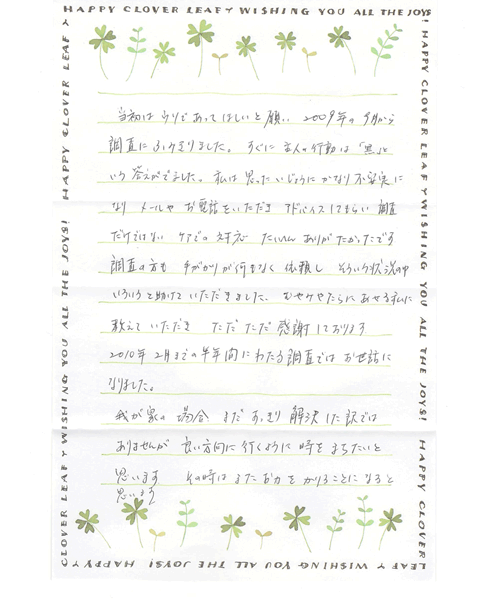 HAPPY CLOVER LEAF WISHING YOU ALL THE JOYS!
当初はシロであってほしいと願い 2009年の9月から
調査にふみきりました。すぐに主人の行動は「黒」と
いう答えがでました。私は思ったいじょうにかなり不安定に
なり メールや お電話をいただき アドバイスしてもらい 調査
だけではない ケアでの対応 たいへんありがたかったです
調査の方も 手がかりが何もなく依頼し そういう状況の中
いろいろと助けていただきました。むやみやたらにあせる私に
教えていただき ただただ 感謝しております
2010年2月までの半年間にわたる調査では お世話に
なりました。
我が家の場合 まだ あっさり 解決した訳では
ありませんが 良い方向に行くように 時をまちたいと
思います その時はまたお力をかりることになると
思います
HAPPY CLOVER LEAF WISHING YOU ALL THE JOYS! HAPPY CLOVER
CLOVER LEAF WISHING YOU ALL THE JOYS! HAPPY CLOVER LEAF
LEAF WISHING YOU ALL THE JOYS! HAPPY